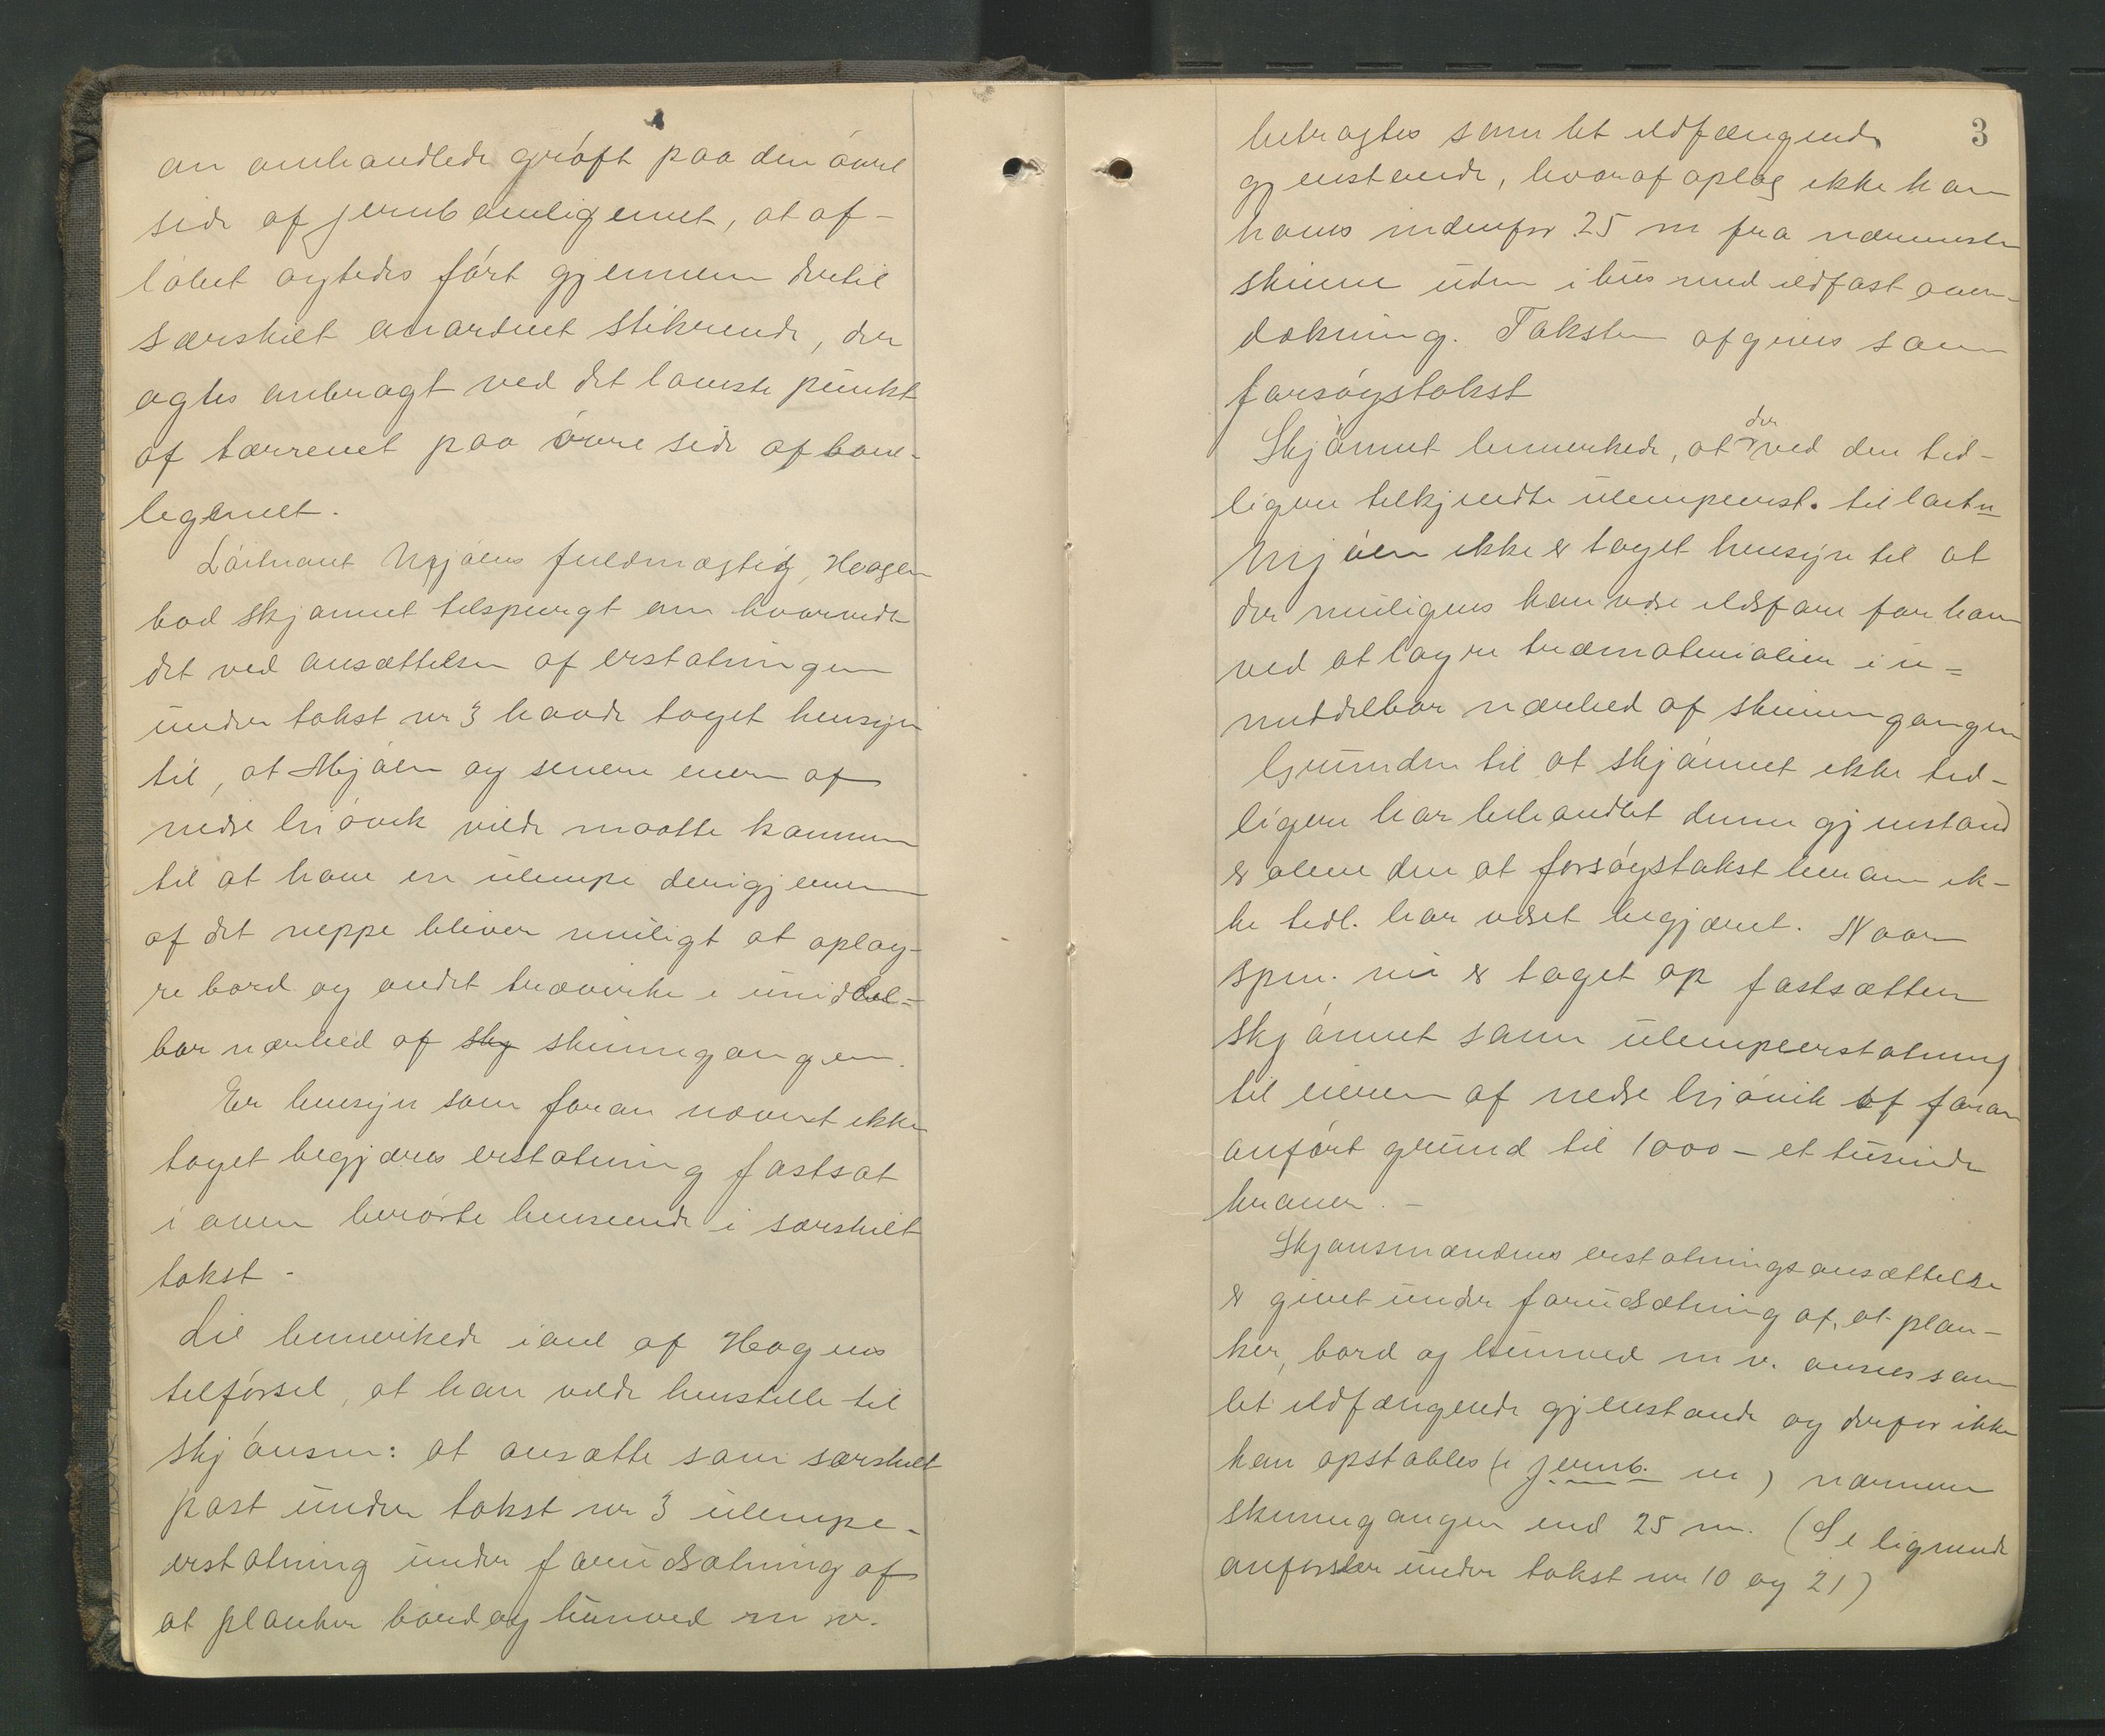 om omhandlede grøft paa den øvre
side af jernbanelegemet, at af-
løbet agtedes ført gjennem dertil
særskilt anordnet stikrende, der
agtes anbragt ved det laveste punkt
af tærrenet paa øvre side af bane-
legemet.
Løitnant Mjøens fuldmægtig, Hagen
bad skjønnet tilspurgt om hvorvidt
det ved ansættelsen af erstatningen
under takst nr 3 havde taget hensyn
til, at Mjøen og senere eiere af
nedre Kjøvik vilde maatte komme
til at have en ulempe derigjennem
af det neppe bliver muligt at oplag-
re bord og andet trævirke i umiddel-
bar nærhed af sky skinnegangen.
Er hensyn som foran nævnt ikke
taget begjæres erstatning fastsat
i oven berørte henseende i særskilt
takst -
Lie bemerkede i anl af Hagens
tilførsel, at han vilde henstille til
skjønsm: at ansætte som særskilt
post under takst nr 3 ulempe-
erstatning under forudsætning af
at planker bord og hunved m v.
3
betragtes som let ildfængende
gjenstande, hvoraf oplag ikke kan
haves indenfor 25 m fra nærmeste
skinne uden i hus med ildfast over-
dækning. Taksten afgives som
forsøgstakst
Skjønnet bemerkede, at der ved den tid-
ligere tilkjendte ulempeerst. til løitn
Mjøen ikke er taget hensyn til at
der muligens kan være ildsfare for ham
ved at lagre træmaterialier i u=
middelbar nærhed af skinnegangen
Grunden til at skjønnet ikke tid-
ligere har behandlet denne gjenstand
er alene den at forsøgstakst herom ik-
ke tidl. har været begjæret. Naar
spm. nu er taget op fastsætter
skjønnet som ulempeerstatning
til eieren af nedre Kjøvik af foran
anført grund til 1000 - et tusinde
kroner. -
Skjønsmændenes erstatningsansættelse
er givet under forudsætning af, at plan-
ker, bord og hunved m v. ansees som
let ildfængende gjenstande og derfor ikke
kan opstables (i jernb. m) nærmere
skinnegangen end 25 m. (Se lignende
anførsler under takst nr 10 og 21)